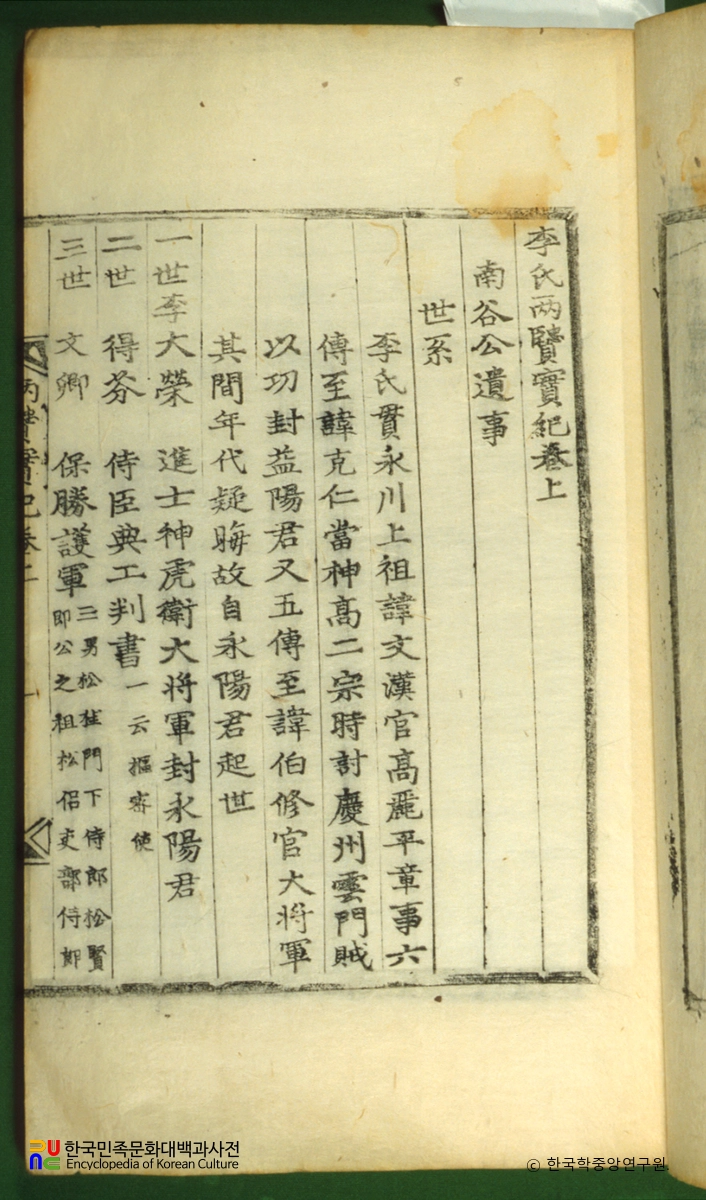 李氏兩賢實紀卷上
南谷公遺事
世系
李氏貫永川上祖諱文漢官高麗平章事六
傳至諱克仁當神高二宗時討慶州雲門賊
以功封益陽君又五傳至諱伯修官大將軍
其間年代疑晦故自永陽君起世
一世李大榮 進士神虎衛大將軍封永陽君
二世 得芬 侍臣典工判書 一云樞密使
三世 文卿 保勝護軍 三男松桂門下侍郎松賢
即公之祖松侶吏部侍郎
兩賢實記卷上
한국민족문화대백과사전
Encyclopedia of Korean Culture
© 한국학중앙연구원